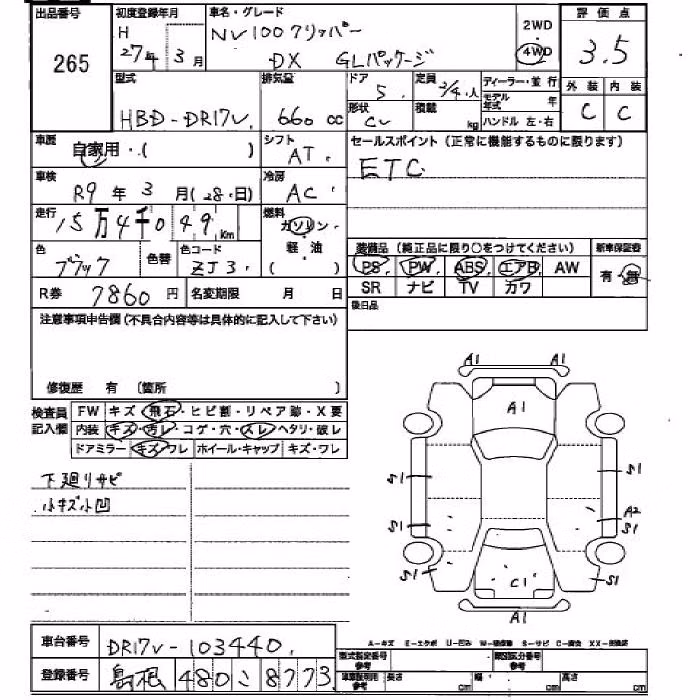 出品番号
265
初度登録年月
H
27年 3月
車名・グレード
NV100クリッパー
DX GLパッケージ
2WD
4WD
評価点
3.5
外装 内装
C C
型式
HBD-DR17V
排気量
660 cc
ドア
5
形状
CV
定員
2/4人
積載
kg
ディーラー・並行
モデル年式 年
ハンドル 左・右
車歴
自家用・( )
シフト
AT
セールスポイント(正常に機能するものに限ります)
ETC
車検
R9年 3月(28・日)
冷房
AC
走行
15万4千049Km
燃料
ガソリン・
軽油
( )
色
ブラック
色替
色コード
ZJ3
装備品(純正品に限り○をつけてください)
PS PW ABS エアB AW
SR ナビ TV カワ
新車保証書
有・無
R券 7860円
名変期限 月 日
後日品
注意事項申告欄(不具合内容等は具体的に記入して下さい)
修復歴 有 〔箇所 〕
検査員記入欄
FW キズ・飛石・ヒビ割・リペア跡・X要
内装 キズ・汚レ・コゲ・穴・スレ・ヘタリ・破レ
ドアミラー キズ・ワレ ホイール・キャップ キズ・ワレ
下廻りサビ
小キズ小凹
A1 A1
A1
S1 S1
A2
S1 S1
S1 C1 S1
A1
A-キズ E-エクボ U-凹み S-サビ
車台番号
DR17V-103440
登録番号
島根 480 さ 8773
型式指定番号
参考
類別区分番号
参考
長さ cm 幅 cm 高さ cm